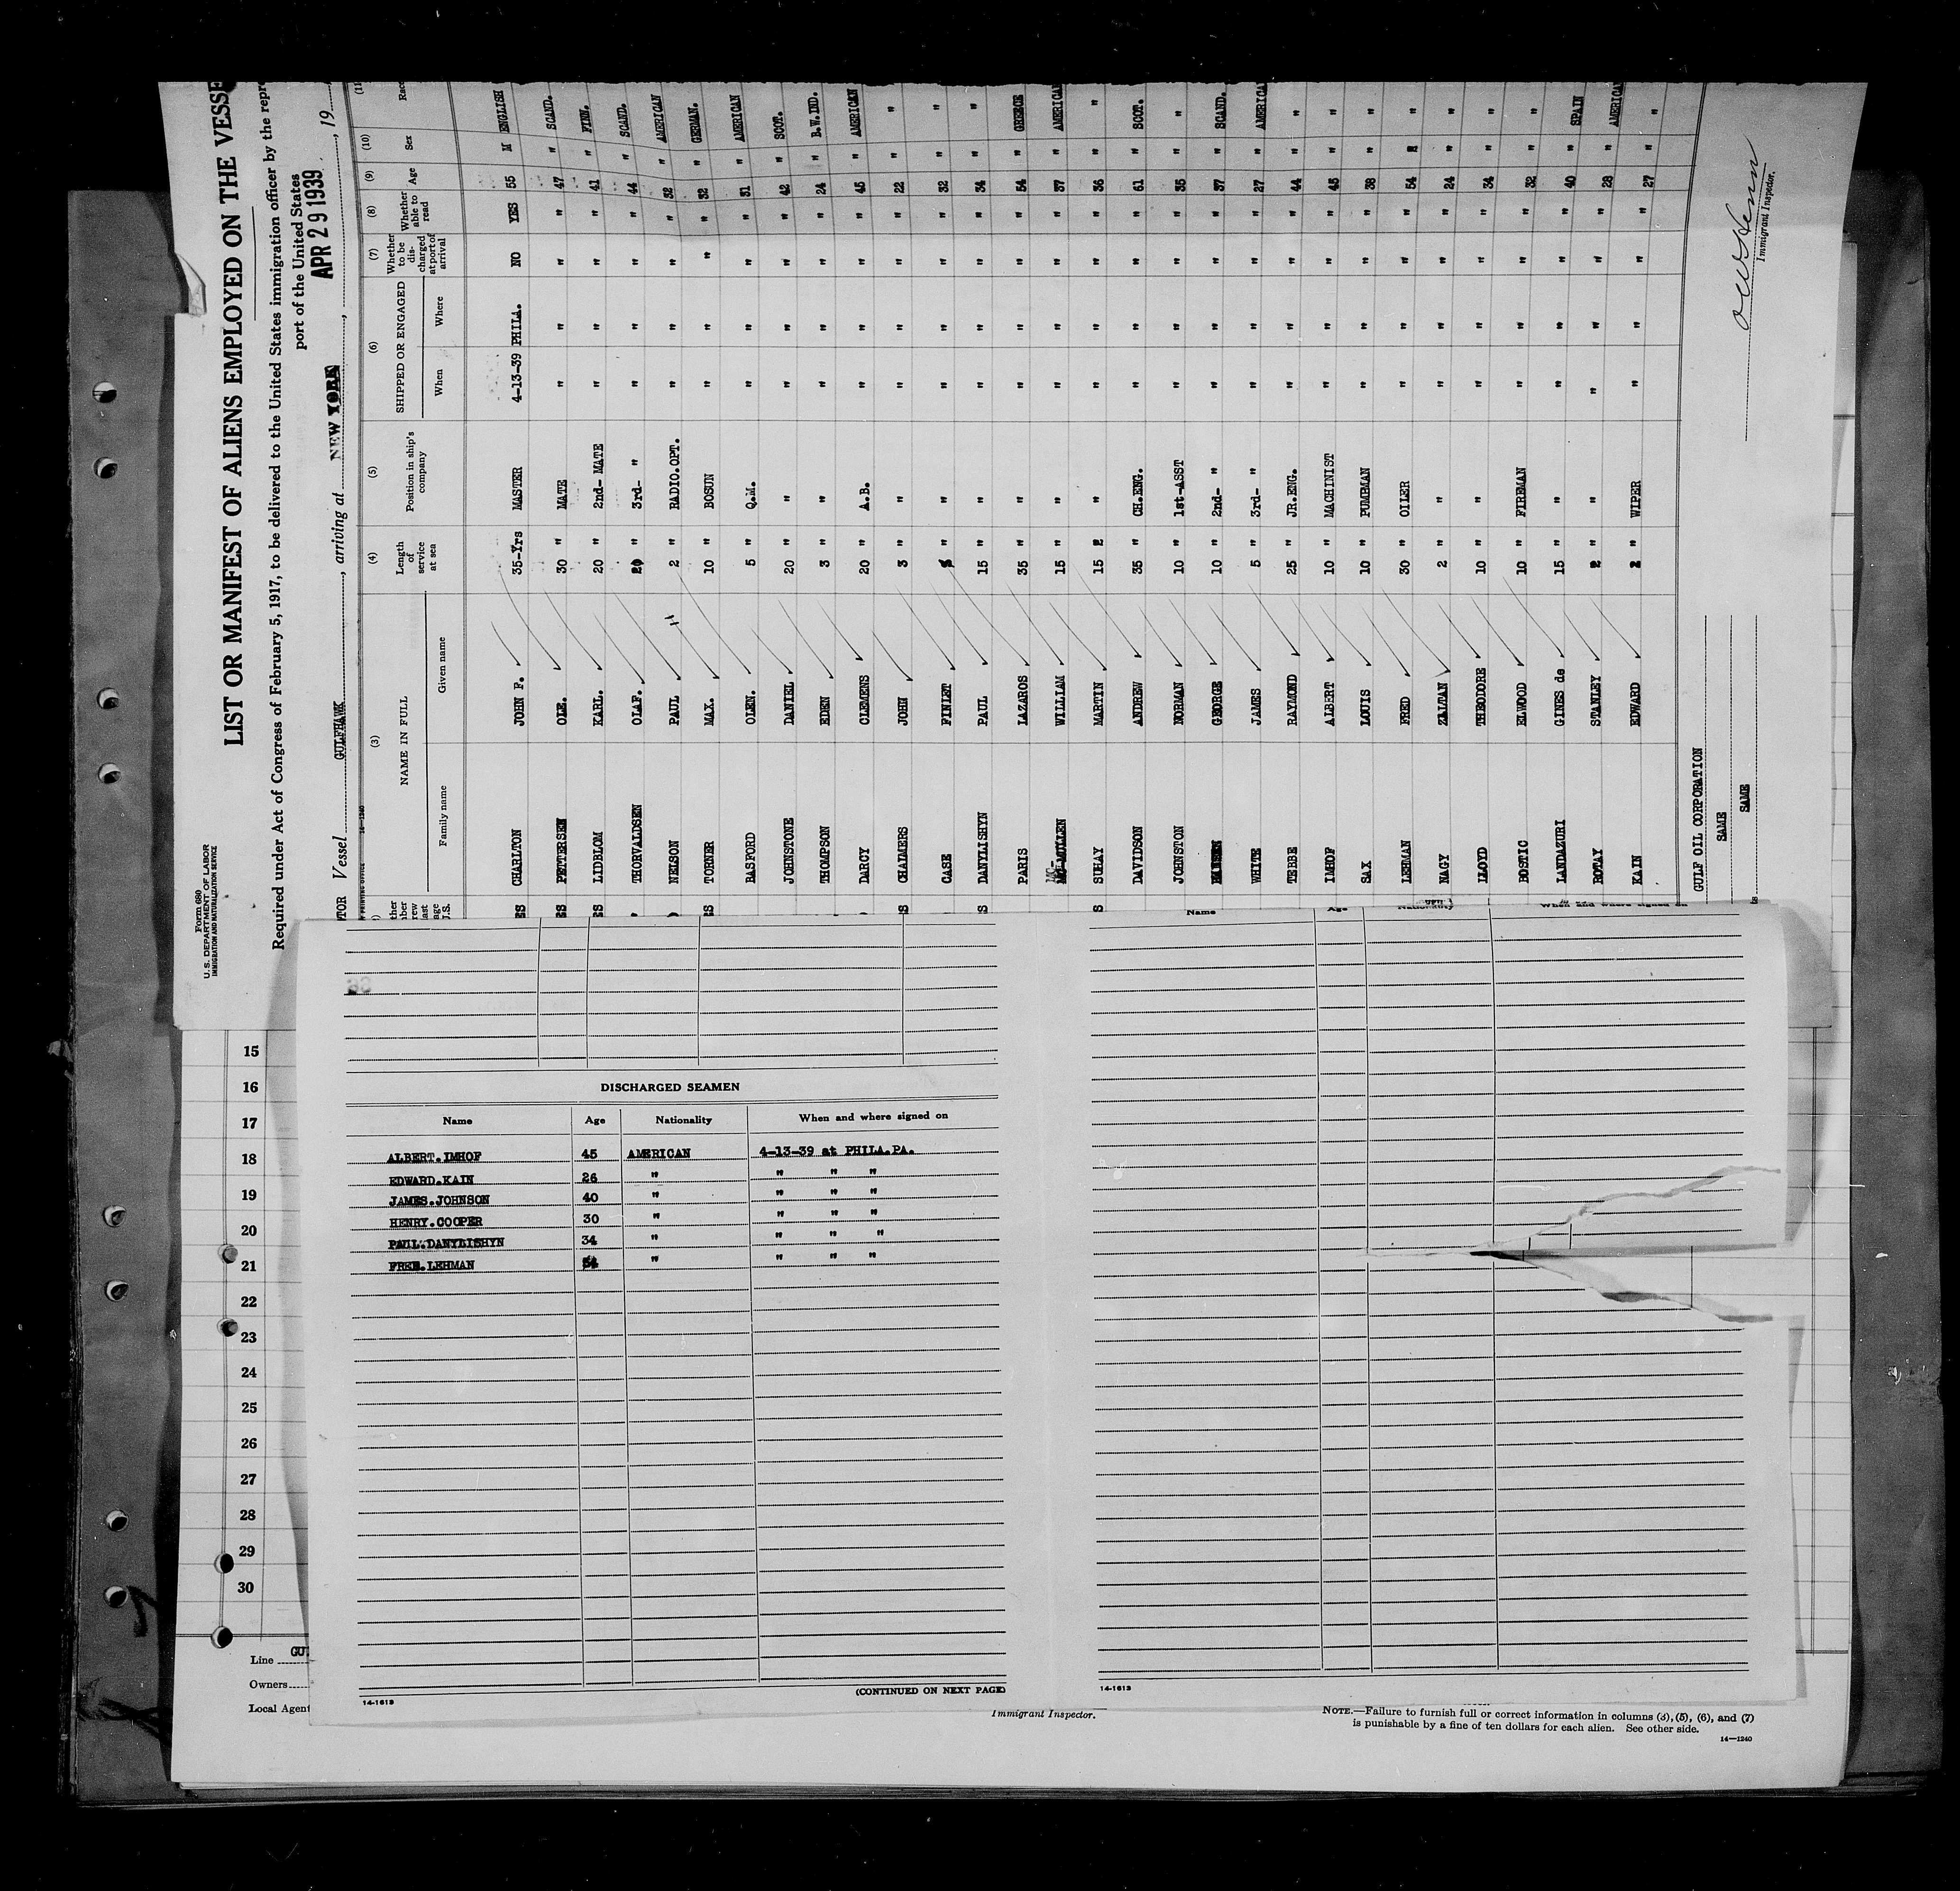 Form 680
U.S. DEPARTMENT OF LABOR
IMMIGRATION AND NATURALIZATION SERVICE
LIST OR MANIFEST OF ALIENS EMPLOYED ON THE VESSE
Required under Act of Congress of February 5, 1917, to be delivered to the United States immigration officer by the repre
port of the United States
TOR Vessel GULFHAWK, arriving at NEW YORK, APR 29 1939, 19
14-1240
(3) (4) (5) (6) (7) (8) (9) (10) (11
NAME IN FULL Length of service at sea Position in ship's company SHIPPED OR ENGAGED Whether to be discharged at port of arrival Whether able to read Age Sex Race
Family name Given name When Where
CHARLTON JOHN F. 35-Yrs MASTER 4-13-39 PHILA. NO YES 55 M ENGLISH
PETTERSEN OLE. 30 " MATE " " " " 47 " SCAND.
LIDBLOM KARL. 20 " 2nd- MATE " " " " 41 " FINN.
THORVALDSEN OLAF. " 3rd- " " " " " 44 " SCAND.
NELSON PAUL 2 " RADIO.OPT. " " " " 32 " AMERICAN
TORNER MAX. 10 " BOSUN " " " " 32 " GERMAN.
BASFORD OLEN. 5 " Q.M. " " " " 31 " AMERICAN
JOHNSTONE DANIEL 20 " " " " " " 42 " SCOT.
THOMPSON EDEN 3 " " " " " " 24 " B.W.IND.
DARCY CLEMENS 20 " A.B. " " " " 45 " AMERICAN
CHALMERS JOHN 3 " " " " " " 22 " "
CASE FINLET " " " " " " 32 " "
DANYLISHYN PAUL 15 " " " " " " 34 " "
PARIS LAZAROS 35 " " " " " " 54 " GREECE
MC-MULLEN WILLIAM 15 " " " " " " 37 " AMERICAN
SUHAY MARTIN 15 " " " " " 36 " "
DAVIDSON ANDREW 35 " CH.ENG. " " " " 61 " SCOT.
JOHNSTON NORMAN 10 " 1st-ASST " " " " 35 " "
GEORGE 10 " 2nd- " " " " " 37 " SCAND.
WHITE JAMES 5 " 3rd- " " " " " 27 " AMERICA
TEBBE RAYMOND 25 " JR.ENG. " " " " 44 " "
IMHOF ALBERT 10 " MACHINIST " " " " 45 " "
SAX LOUIS 10 " PUMBMAN " " " " 38 " "
LEHMAN FRED 30 " OILER " " " " 54 "
NAGY ZALTAN 2 " " " " " " 24 " "
LLOYD THEODORE 10 " " " " " " 34 " "
BOSTIC ELWOOD 10 " FIREMAN " " " " 32 " "
LANDAZURI GINES de 15 " " " " " " 40 " SPAIN
ROTAY STANLEY 2 " " " " " " 28 " AMERICA
KAIN EDWARD 2 " WIPER " " " " 27 " "
GULF OIL CORPORATION
SAME
SAME
Immigrant Inspector.
15
16
17
18
19
20
21
22
23
24
25
26
27
28
29
30
Line GU
Owners
Local Agent
DISCHARGED SEAMEN
Name Age Nationality When and where signed on
ALBERT.IMHOF 45 AMERICAN 4-13-39 at PHILA.PA.
EDWARD.KAIN 26 " " " "
JAMES.JOHNSON 40 " " " "
HENRY.COOPER 30 " " " "
PAUL.DANYLISHYN 34 " " " "
FRED.LEHMAN 54 " " " "
14-1613
(CONTINUED ON NEXT PAGE)
Name Age Nationality When and where signed on
14-1613
Immigrant Inspector.
NOTE.—Failure to furnish full or correct information in columns (3), (5), (6), and (7)
is punishable by a fine of ten dollars for each alien. See other side.
14—1240